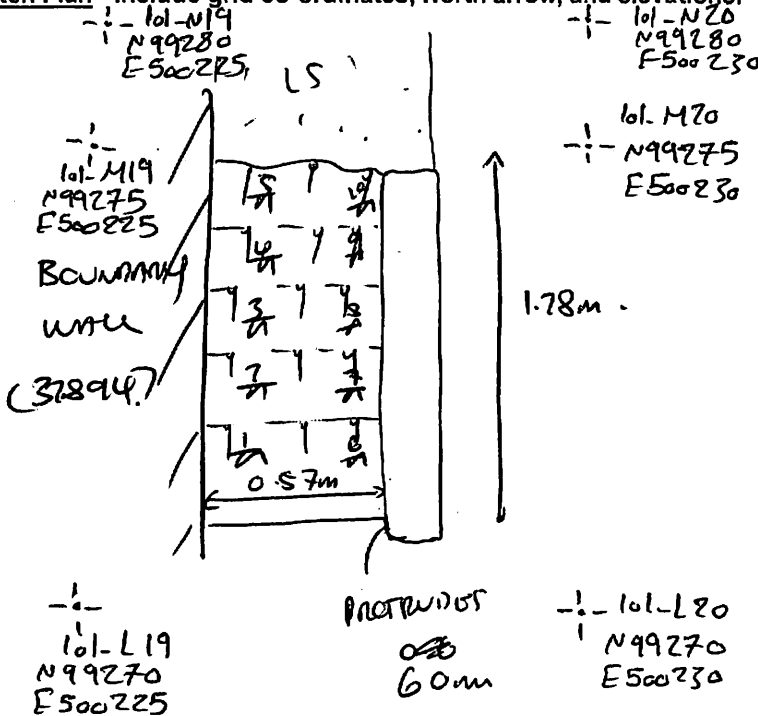 Plan - include grid co-ordinates, north arrow, and elevations.
101-N19
N99280
E500225
101-N20
N99280
E500230
LS
101-M19
N99275
E500225
101-M20
N99275
E500230
BOUNDARY
WALL
(32894?)
5 10
4 9
3 8
2 7
1 6
1.78m.
0.57m
PROTRUDES
60mm
101-L19
N99270
E500225
101-L20
N99270
E500230